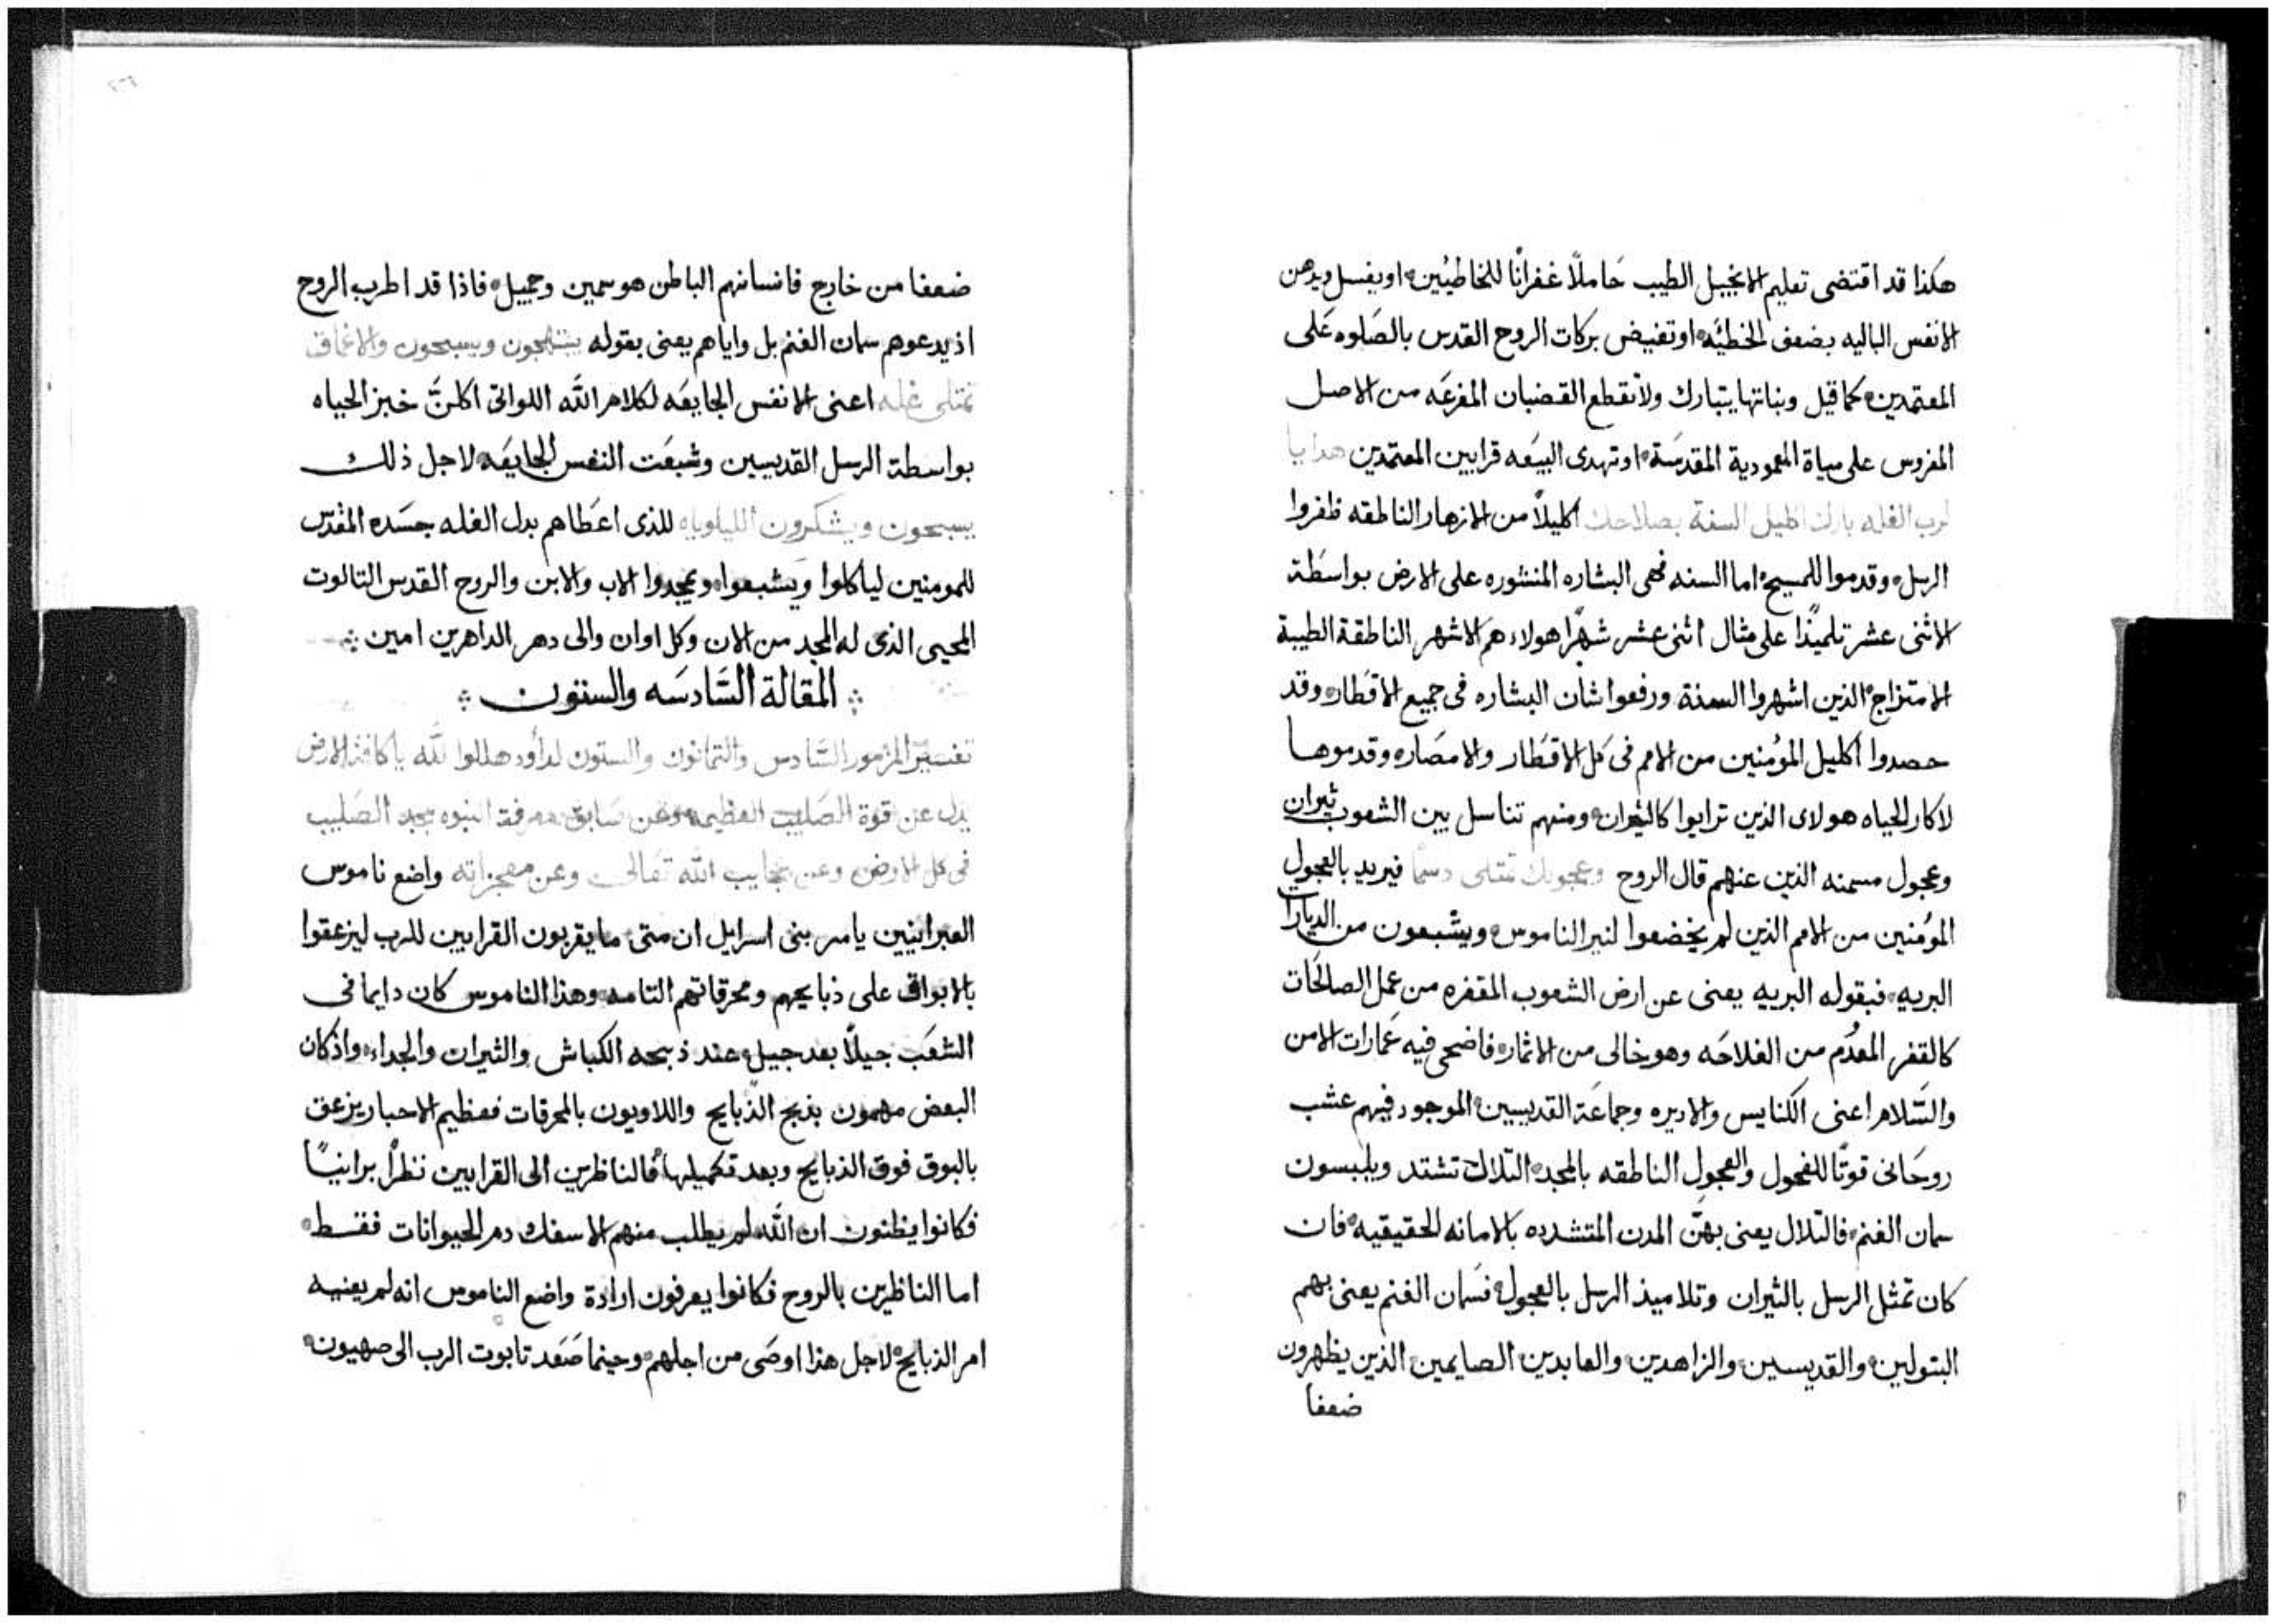 هكذا قد اقتضى تعليم الانجيل الطيب حَاملاً غفرانًا للخاطيُين اويغسل ويدهن
الانفس الباليه بضعف الخطيَه اوتفيض بركات الروح القدس بالصَلوه عَلى
المعتمدين كما قيل ونباتها يتبارك ولا تقطع القضبان المفرعَه من الاصل
المغروس على مياة المعمودية المقدسَة اوتهدى البيعَه قرابين المعتمدين هدايا
لرب الغله بارك اكليل السنة بصلاحك اكليلاً من الازهار الناطقه ظفروا
الرسل وقدموا للمسيح اما السنه فهى البشاره المنشوره على الارض بواسطَة
الاثنى عشر تلميذًا على مثال اثنى عشر شهرًا هولاء هم الاشهر الناطقة الطيبة
الامتزاج الذين اشهروا السنة ورفعوا شان البشاره فى جميع الاقطَار وقد
حصدوا اكليل المؤمنين من الامم فى كل الاقطَار والامصَار وقدموها
لاكار الحياه هولاى الذين ترايوا كالثيران ومنهم تناسل بين الشعوب ثيران
وعجول مسمنه الذين عنهم قال الروح وعجولك تمتلى دسمًا فيريد بالعجول
المؤمنين من الامم الذين لم يخضعوا لنير الناموس ويشبعون من الديارا
البريه فبقوله البريه يعنى عن ارض الشعوب المقفره من عمل الصالحَات
كالقفر المعدُم من الفلاحَه وهو خالى من الاثمار فاضحى فيه عَمارات الامن
والسَّلام اعنى الكنايس والاديره وجماعَة القديسين الموجود فيهم عشب
روحَانى قوتًا للفحول والعجول الناطقه بالمجد التلال تشتد ويلبسون
سمان الغنم فالتلال يعنى بهنّ المدن المتشدده بالامانه الحقيقيه فان
كان تمثل الرسل بالثيران وتلاميذ الرسل بالعجول فسَمان الغنم يعنى بهم
البتولين والقديسين والزاهدين والعابدين الصايمين الذين يظهرون
ضعفا
ضعفا من خارج فانسانهم الباطن هو سمين وجميل فاذا قد اطرب الروح
اذ يدعوهم سمان الغنم بل واياهم يعنى بقوله يبتهجون ويسبحون والاعماق
تمتلى غله اعنى الانفس الجايعَه لكلام الله اللواتى اكلنَّ خبز الحياه
بواسطة الرسل القديسين وشبعَت النفس الجايعَه لاجل ذلك
يسبحون ويشكرون الليلوياه للذى اعطَاهم بدل الغله جسَده المقدّس
للمومنين لياكلوا ويشبعوا ويمجدوا الاب والابن والروح القدس التالوت
المحيى الذى له المجد من الان وكل اوان والى دهر الداهرين امين
المقالة السَّادسَه والستون
تفسير المزمور السَّادس والتمانون والستون لداود هللوا لله يا كافة الارض
يدل عن قوة الصَليب العظيمه وعن سَابق معرفة النبوه بمجد الصَليب
فى كل الارض وعن عجايب الله تعَالى وعن معجزاته واضع ناموس
العبرانيين يامر بنى اسرايل ان متى ما يقربون القرابين للرب ليزعقوا
بالابواق على ذبايحهم ومحرقاتهم التامه وهذا الناموس كان دايما فى
الشعَب جيلاً بعد جيل عند ذبحه الكباش والثيران والجداء واذ كان
البعض مهمون بذبح الذّبايح واللاويون بالمحرقات فعظيم الاحبار يزعق
بالبوق فوق الذبايح وبعد تكميلها فالناظرين الى القرابين نظرًا برانيًا
فكانوا يظنون ان الله لم يطلب منهم الا سفك دم الحيوانات فقط
اما الناظرين بالروح فكانوا يعرفون ارادة واضع الناموس انه لم يعنيه
امر الذبايح لاجل هذا اوصَى من اجلهم وحينما صَعَد تابوت الرب الى صهيون